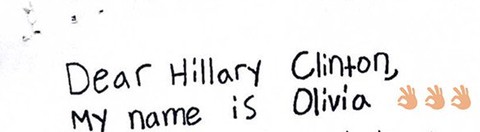 Dear Hillary Clinton,
My name is Olivia 👌👌👌